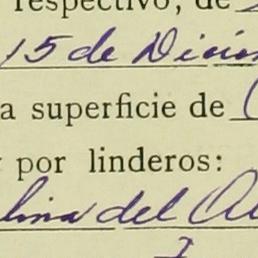 respectivo, de
15 de Dicie
a superficie de
por linderos:
lina del Al